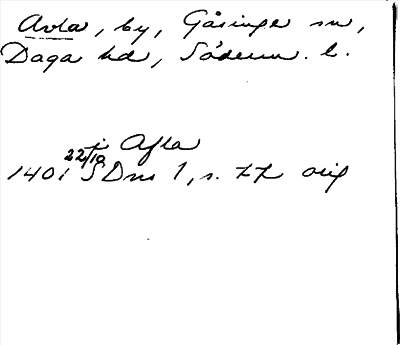 Avla, by, Gåsinge sn,
Daga hd, Söderm. l.
i Afla
1401 22/10 SDns 1, s. 77 orig